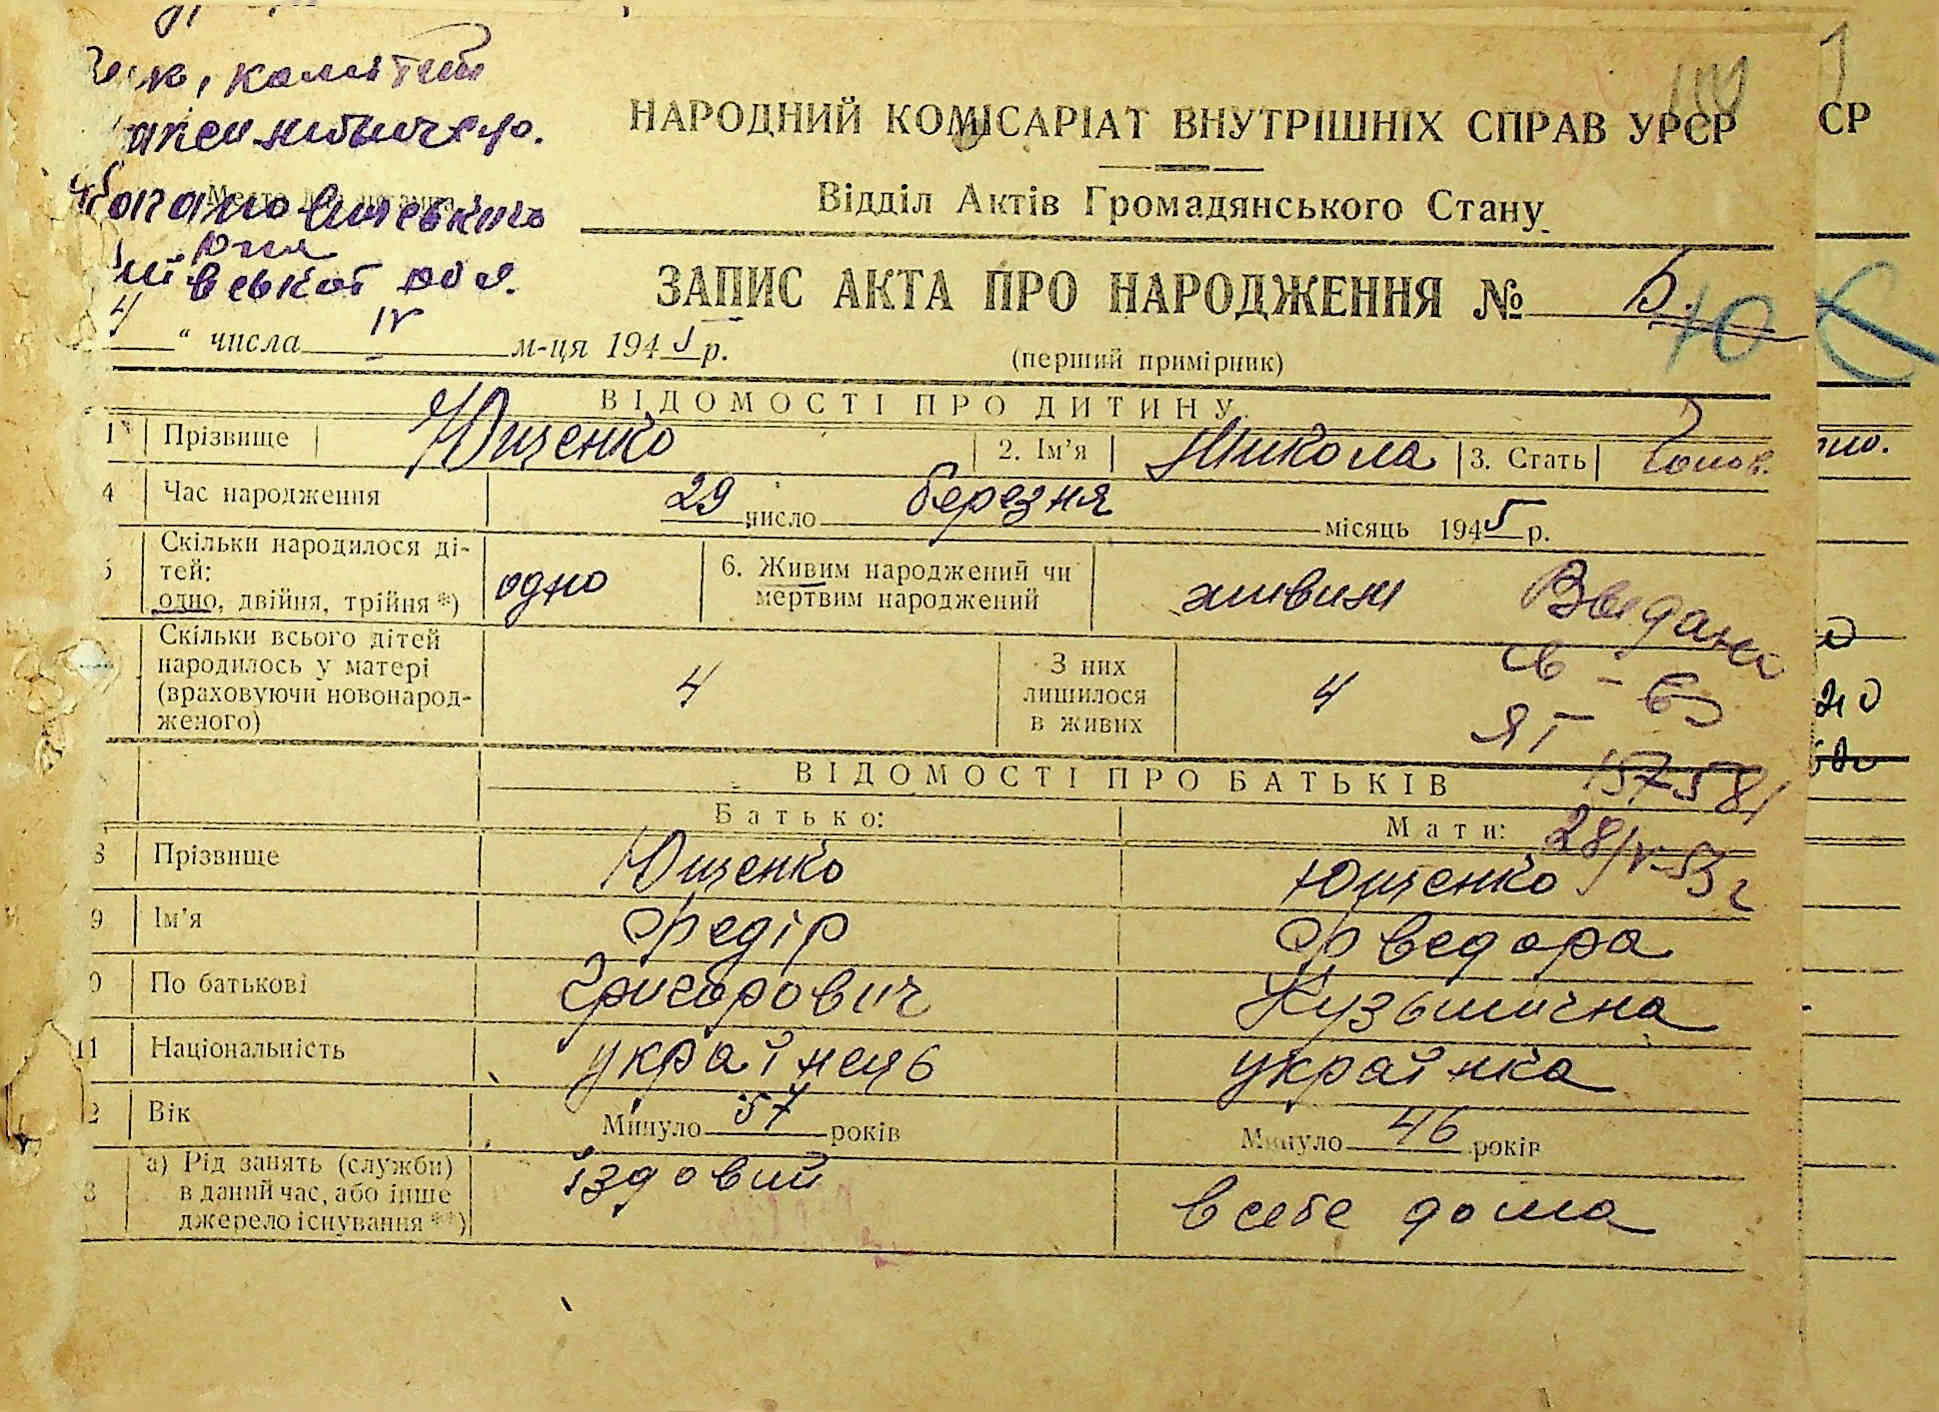 комітет
НАРОДНИЙ КОМІСАРІАТ ВНУТРІШНІХ СПРАВ УРСР
СР
Відділ Актів Громадянського Стану
ївської обл.
ЗАПИС АКТА ПРО НАРОДЖЕННЯ № 5.
Ю
4 " числа IV м-ця 1945 р.
(перший примірник)
ВІДОМОСТІ ПРО ДИТИНУ
1 Прізвище Ющенко 2. Ім'я Микола 3. Стать Чолов.
4 Час народження 29 число березня місяць 1945 р.
5 Скільки народилося ді-
тей:
одно, двійня, трійня *) одно 6. Живим народжений чи
мертвим народжений живим
Видано
св-во
ЯГ
157581
28/V-53 г
Скільки всього дітей
народилось у матері
(враховуючи новонарод-
женого) 4 З них
лишилося
в живих 4
ВІДОМОСТІ ПРО БАТЬКІВ
Батько: Мати:
8 Прізвище Ющенко Ющенко
9 Ім'я Федір Фведора
0 По батькові Григорович Кузьмична
11 Національність українець українка
2 Вік Минуло 57 років Минуло 46 років
3 а) Рід занять (служби)
в даний час, або інше
джерело існування **) їздовий в себе дома